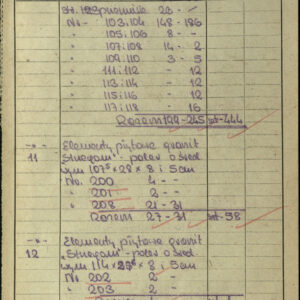 Nr - 103i104 148-186
" 105i106 8 - -
" 107i108 14 - 2
" 109i110 3 - 5
" 111i112 - 12
" 113i114 - 12
" 115i116 - 12
" 117i118 - 16
Razem 199-245 szt-444
11 Elementy płytowe granit
"Strzegom" - poler o śred
nym 107⁵ x 28 x 8 i 5cm
Nr. 200 4 -
" 201 2 -
" 208 21 - 31
Razem 27-31 szt-58
12 Elementy płytowe granit
"Strzegom" - poler o śred
nym 114 x 8 i 5cm
Nr. 202 2 -
" 203 2 -